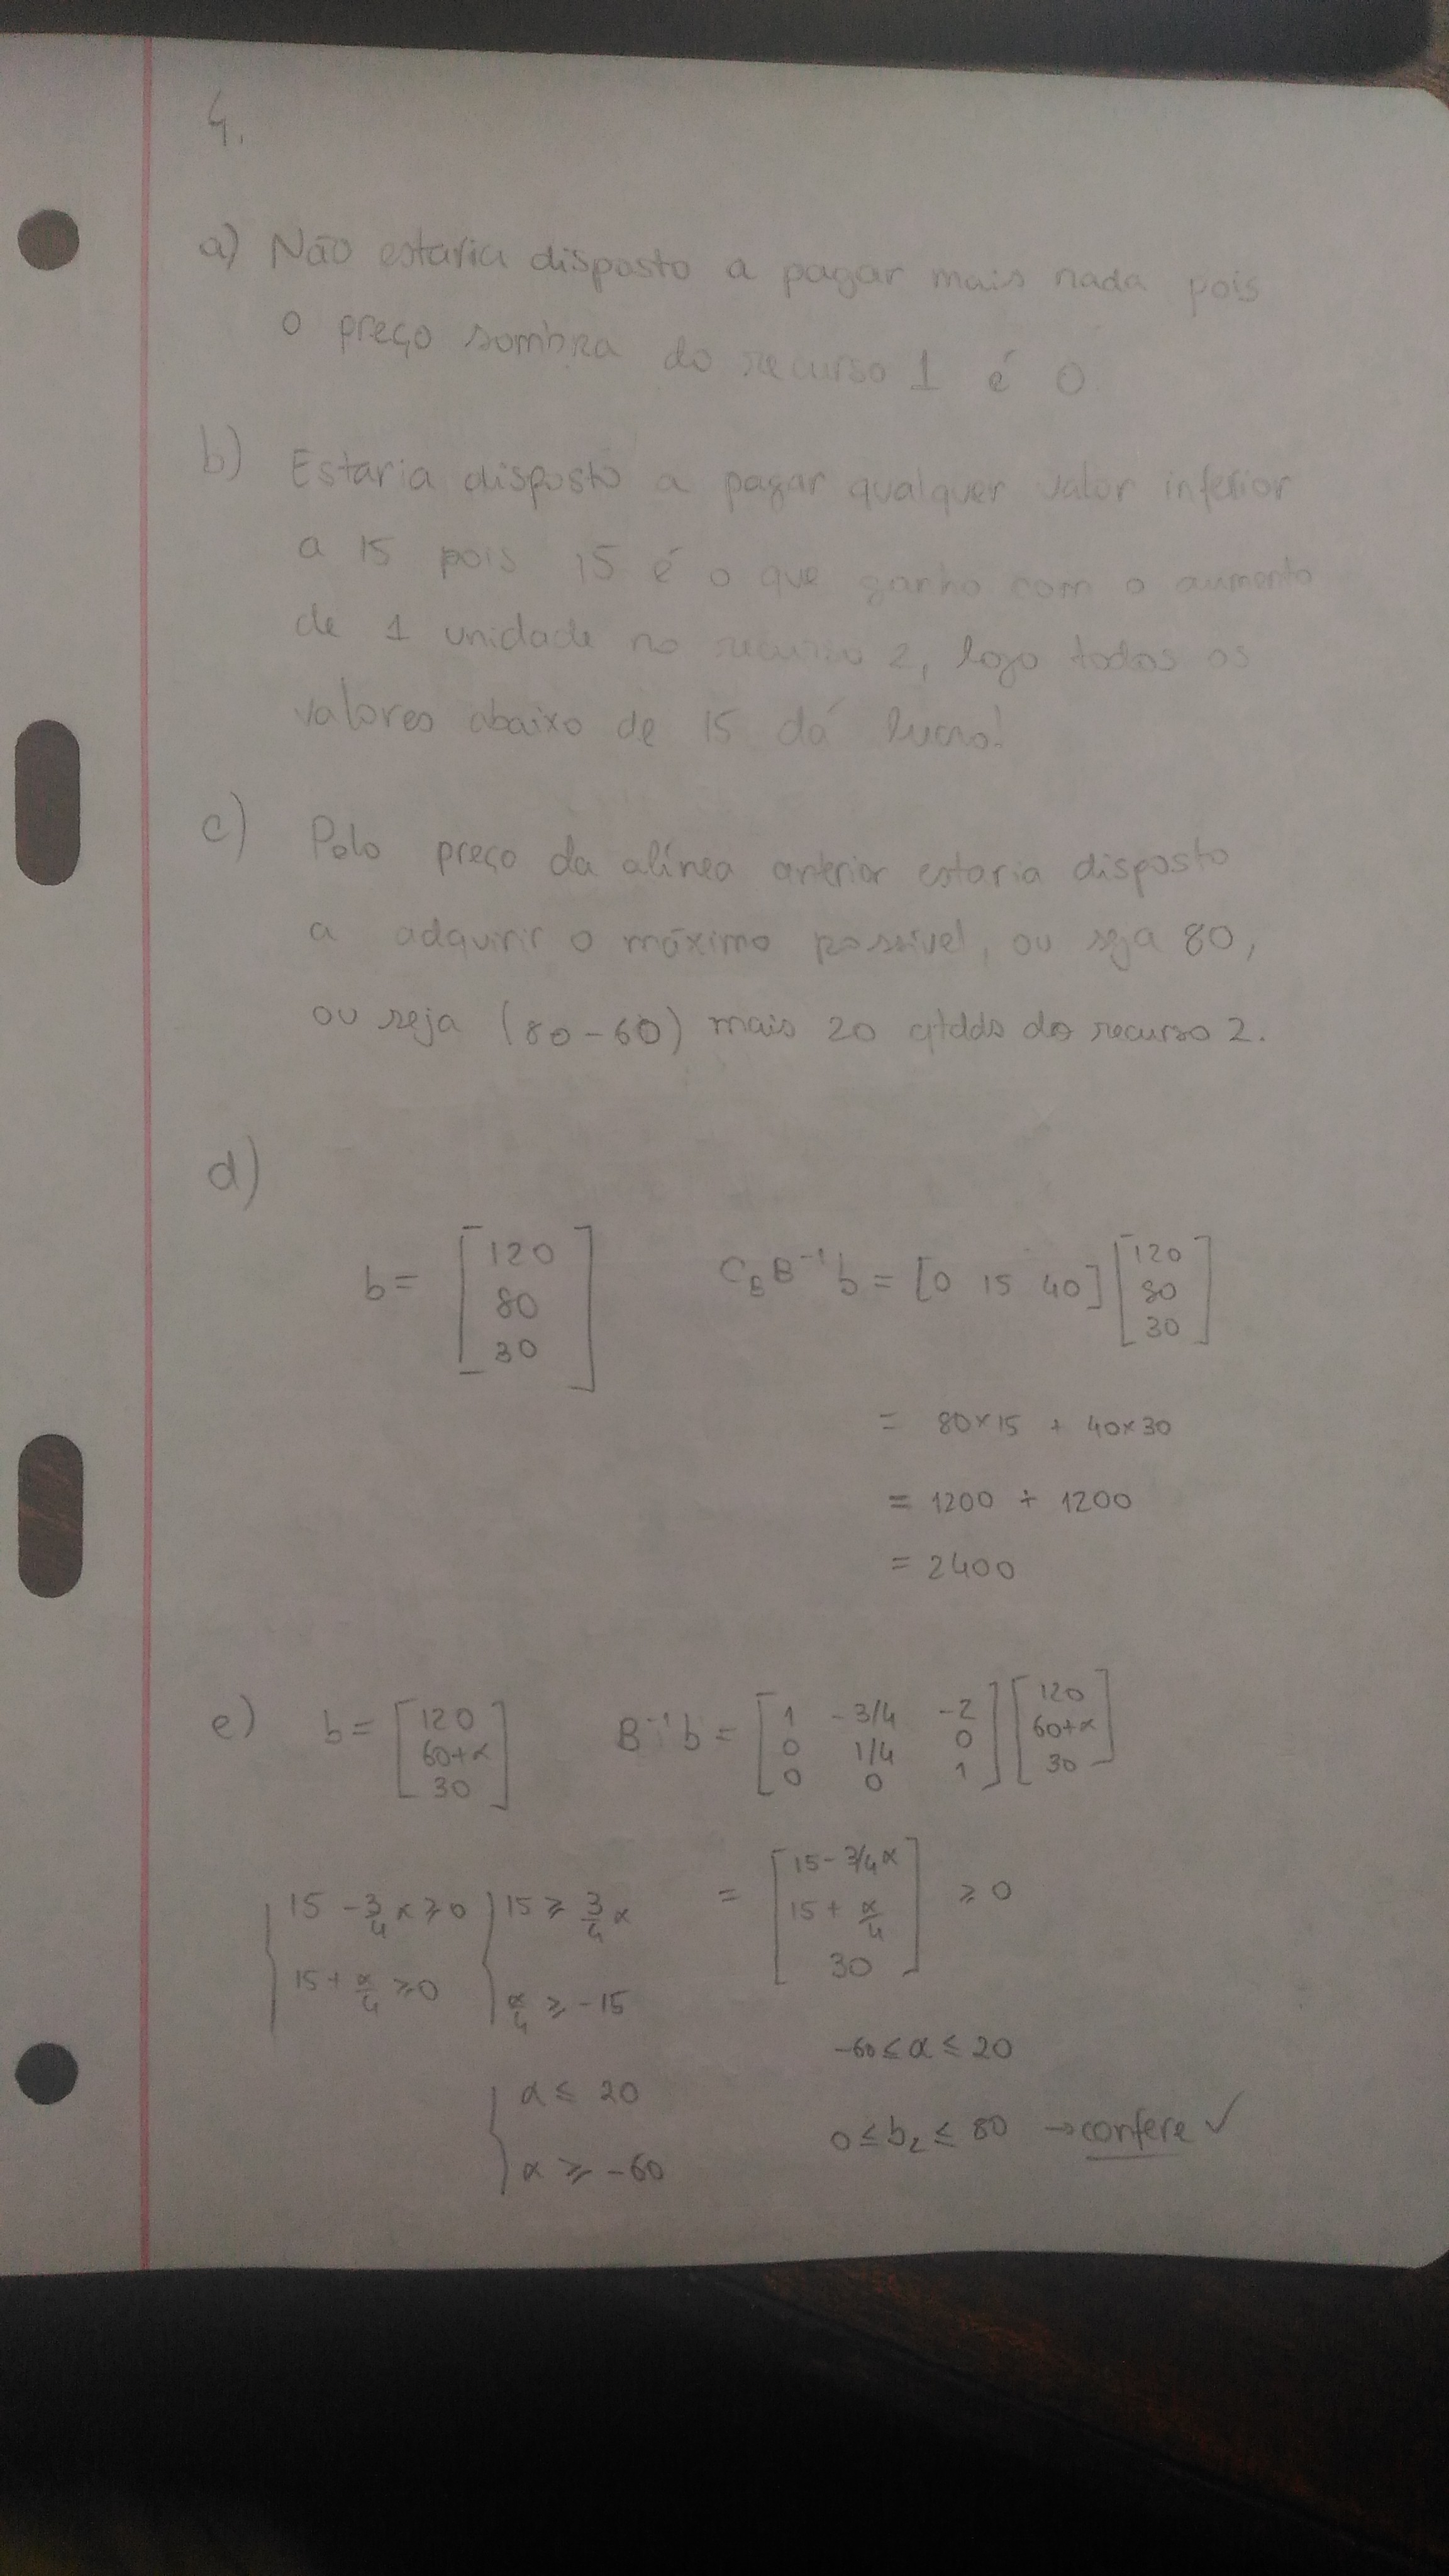 4.
a) Não estaria disposto a pagar mais nada pois
o preço sombra do recurso 1 é 0
b) Estaria disposto a pagar qualquer valor inferior
a 15 pois 15 é o que ganho com o aumento
de 1 unidade no recurso 2, logo todos os
valores abaixo de 15 dá lucro!
c) Pelo preço da alínea anterior estaria disposto
a adquirir o máximo possível, ou seja 80,
ou seja (80-60) mais 20 qtdds do recurso 2.
d)
b = [120 80 30] C_B B⁻¹ b = [0 15 40] [120 80 30]
= 80×15 + 40×30
= 1200 + 1200
= 2400
e) b = [120 60+α 30] B⁻¹ b = [1 -3/4 -2 0 1/4 0 0 0 1] [120 60+α 30]
= [15 - 3/4 α 15 + α/4 30] ≥ 0
{ 15 - 3/4 α ≥ 0 { 15 ≥ 3/4 α
15 + α/4 ≥ 0 α/4 ≥ -15
-60 ≤ α ≤ 20
{ α ≤ 20
0 ≤ b₂ ≤ 80 → confere ✓
α ≥ -60